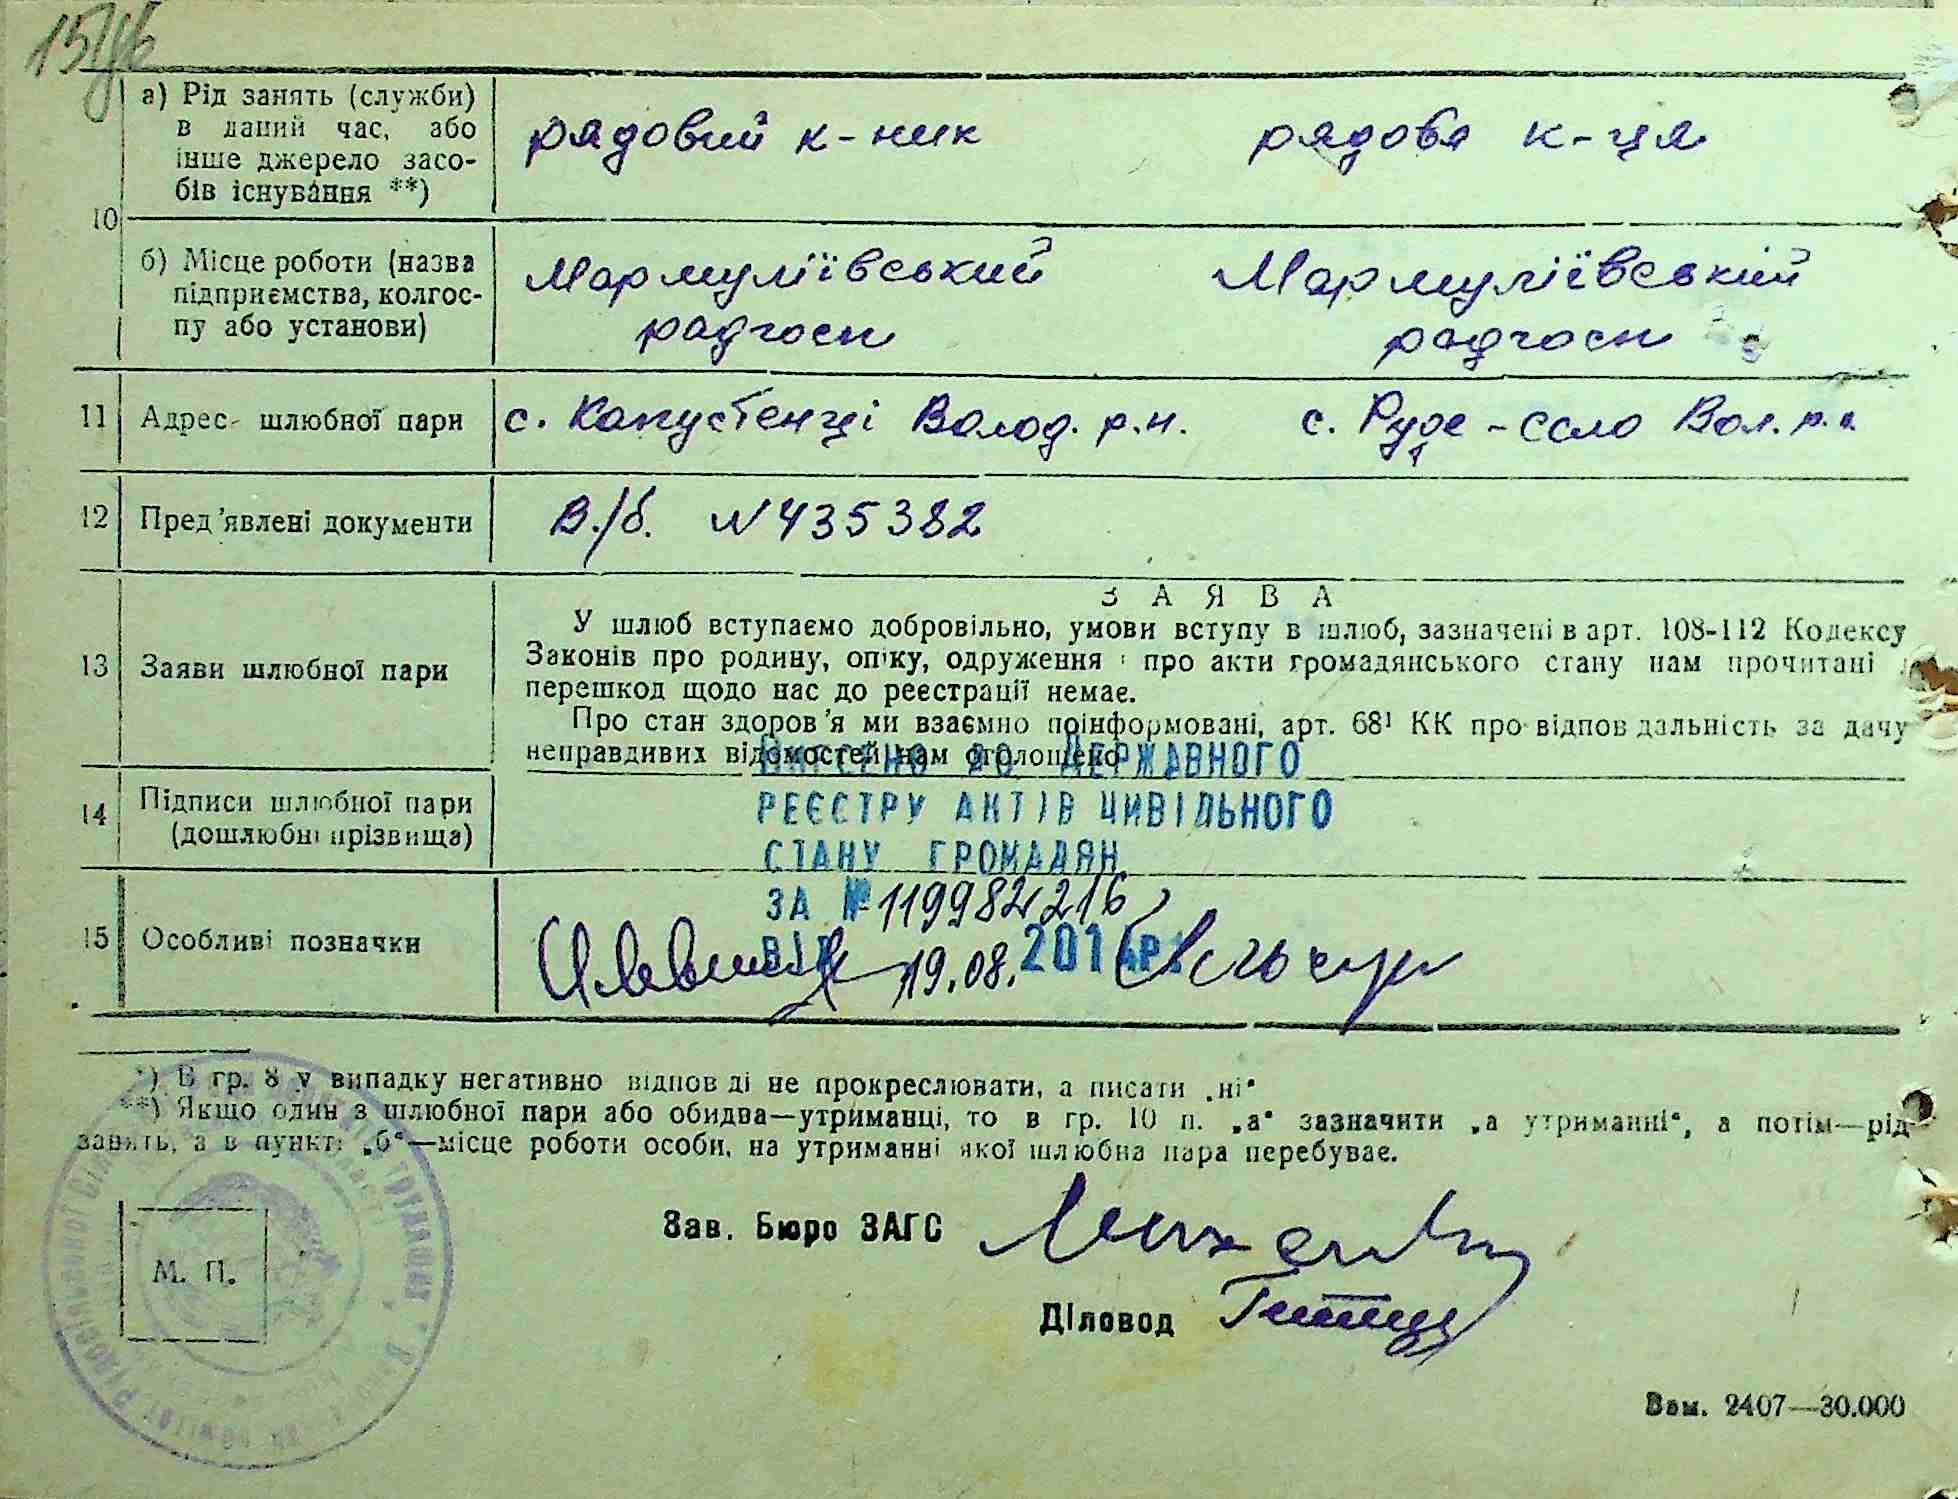 а) Рід занять (служби)
в даний час, або
інше джерело засо-
бів існування **)
рядовий к-ник
рядова к-ця
10
б) Місце роботи (назва
підприємства, колгос-
пу або установи)
Мармуліївський
радгосп
Мармуліївський
радгосп
11 Адрес шлюбної пари
с. Капустенці Волод. р.н.
с. Руде-село Вол. р.н.
12 Пред'явлені документи
В./б. N435382
13 Заяви шлюбної пари
ЗАЯВА
У шлюб вступаємо добровільно, умови вступу в шлюб, зазначені в арт. 108-112 Кодексу
Законів про родину, опіку, одруження і про акти громадянського стану нам прочитані
перешкод щодо нас до реєстрації немає.
Про стан здоров'я ми взаємно поінформовані, арт. 68¹ КК про відповідальність за дачу
неправдивих відомостей нам оголошено
ВНЕСЕНО ДО ДЕРЖАВНОГО
РЕЄСТРУ АКТІВ ЦИВІЛЬНОГО
СТАНУ ГРОМАДЯН
ЗА №
ВІД 19.08.
14 Підписи шлюбної пари
(дошлюбні прізвища)
15 Особливі позначки
*) В гр. 8 у випадку негативно відповіді не прокреслювати, а писати „ні"
**) Якщо один з шлюбної пари або обидва—утриманці, то в гр. 10 п. „а" зазначити „а утриманні", а потім—рід
занять, а в пункті „б"—місце роботи особи, на утриманні якої шлюбна пара перебуває.
М. П.
Зав. Бюро ЗАГС
Діловод
Зам. 2407—30.000